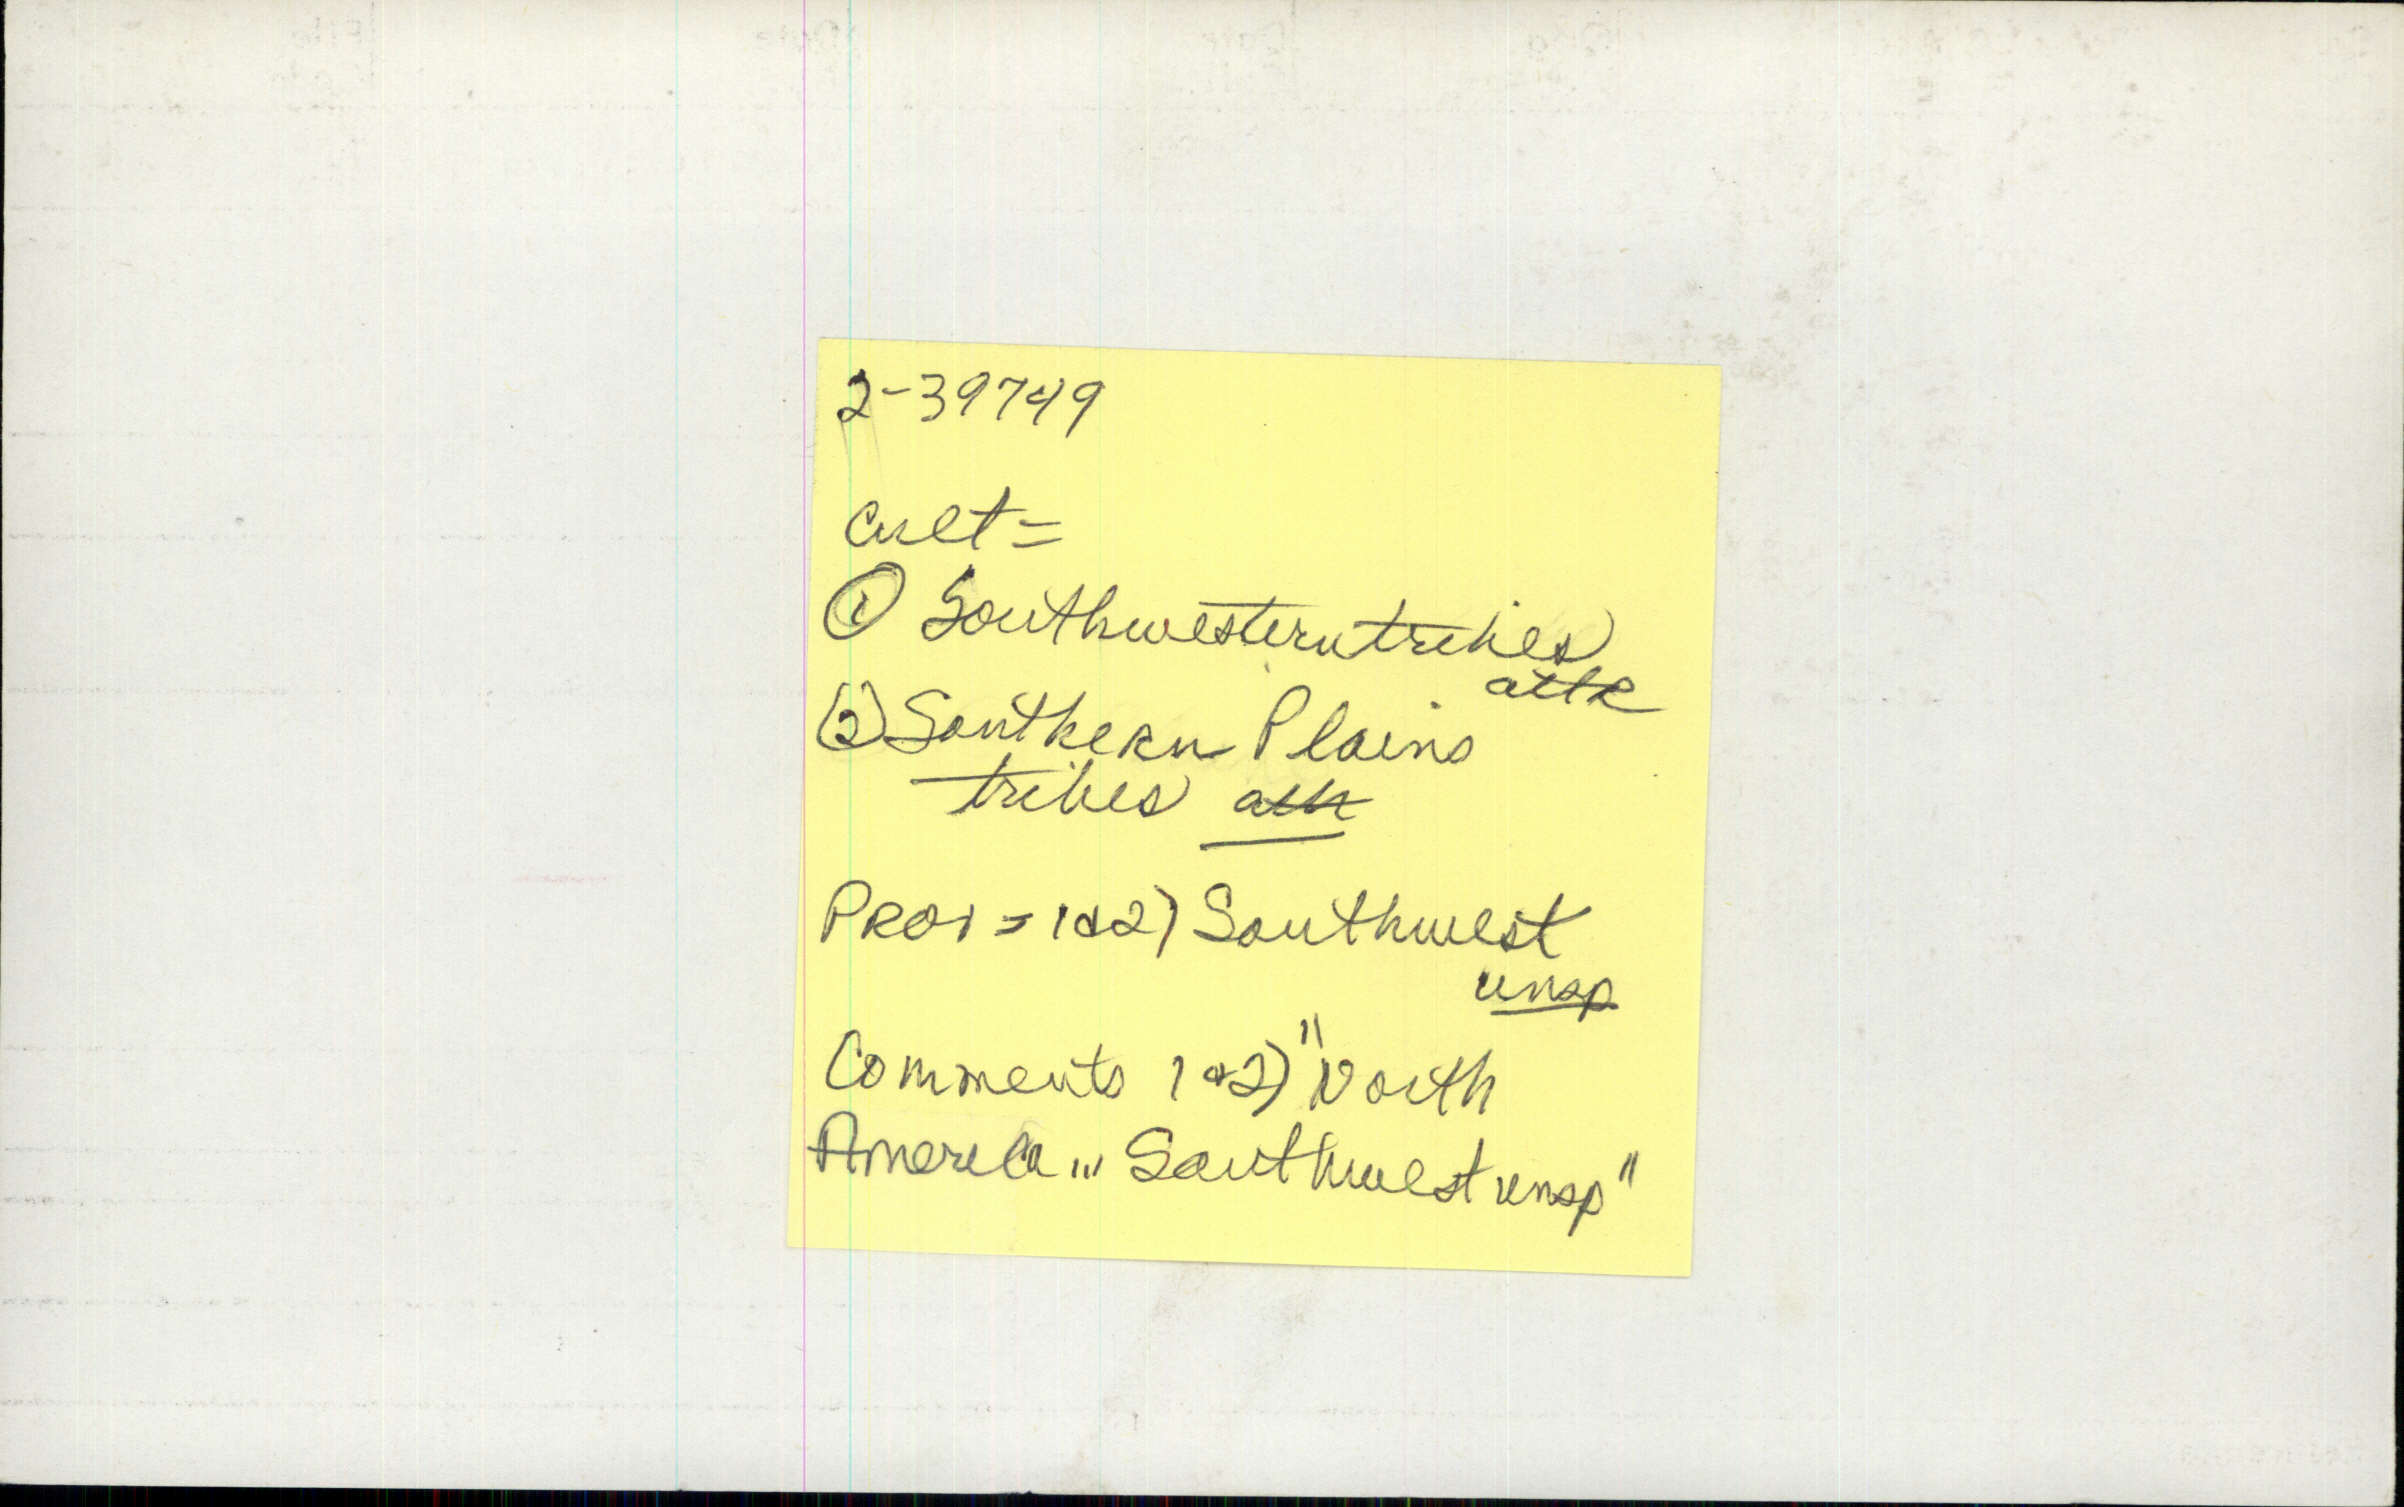 2-39749
Cult=
① Southwestern tribes
attr
② Southern Plains
tribes attr
Prov = 1&2) Southwest
unsp
Comments 1&2) "North
America... Southwest unsp"